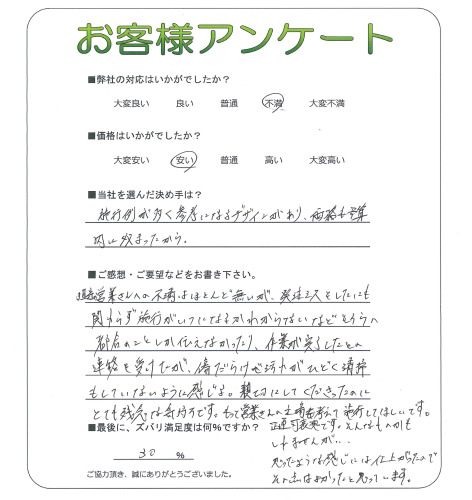 お客様アンケート
■弊社の対応はいかがでしたか？
大変良い 良い 普通 不満 大変不満
■価格はいかがでしたか？
大変安い 安い 普通 高い 大変高い
■当社を選んだ決め手は？
施行例が多く参考になるデザインがあり、価格も予算
内に収まったから。
■ご感想・ご要望などをお書き下さい。
営業さんへの不満はほとんど無いが、発注ミスをしたにも
関わらず施行がいつになるかわからないなどそちらの
都合のことしか伝えなかったり、作業が完了したとの
連絡を受けたが、傷だらけで汚れがひどく清掃
もしていないように感じる。親切にしてくださったのに
とても残念な気持ちです。もっと営業さんの立場を考えて施行してほしいです。
■最後に、ズバリ満足度は何%ですか？
正直可哀想です。そんなものかも
しれませんが…
30 %
思ったような感じには仕上がったので
そこはよかったと思っています。
ご協力頂き、誠にありがとうございました。